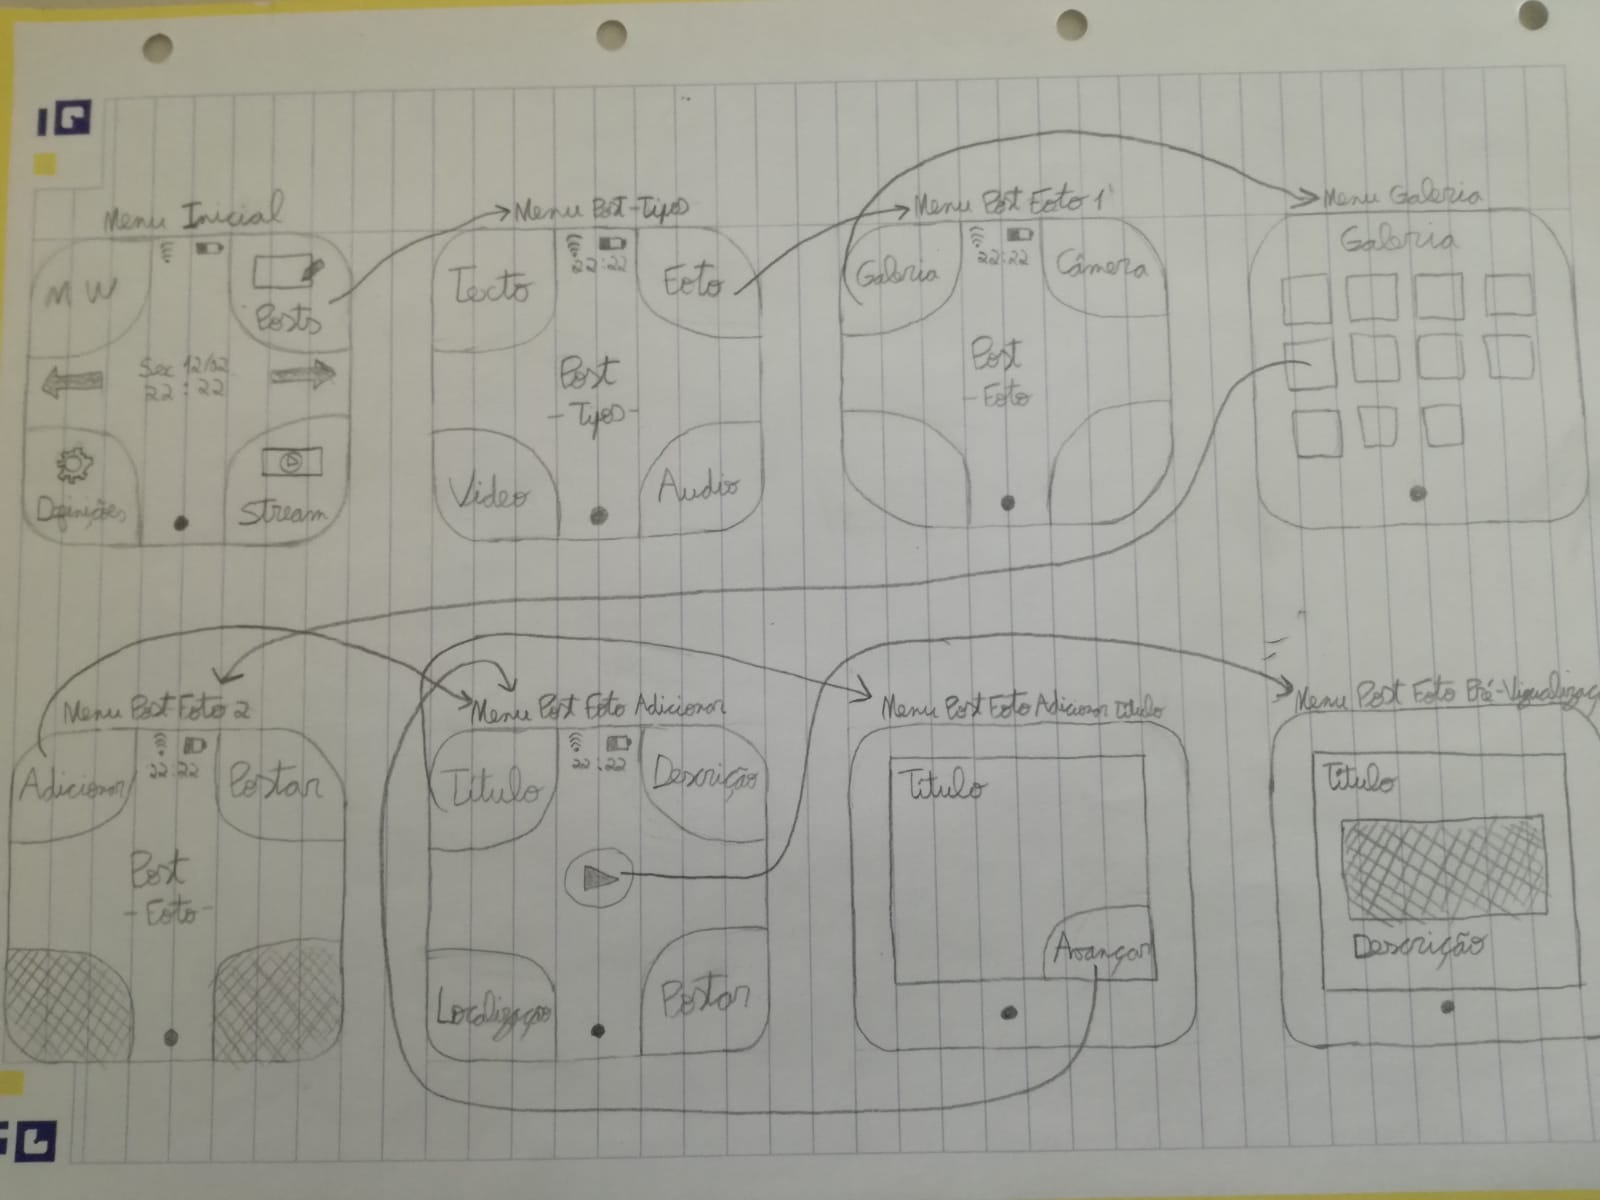 Menu Inicial
MW
Posts
Sex 12/02
22:22
Definições
Stream
Menu Post-Tipos
22:22
Texto
Foto
Post
-Tipos-
Video
Audio
Menu Post Foto 1
22:22
Galeria
Câmera
Post
-Foto
Menu Galeria
Galeria
Menu Post Foto 2
22:22
Adicionar
Postar
Post
-Foto-
Menu Post Foto Adicionar
22:22
Titulo
Descrição
Localização
Postar
Menu Post Foto Adicionar Titulo
Titulo
Avançar
Menu Post Foto Pré-Vizualizaç
Titulo
Descrição